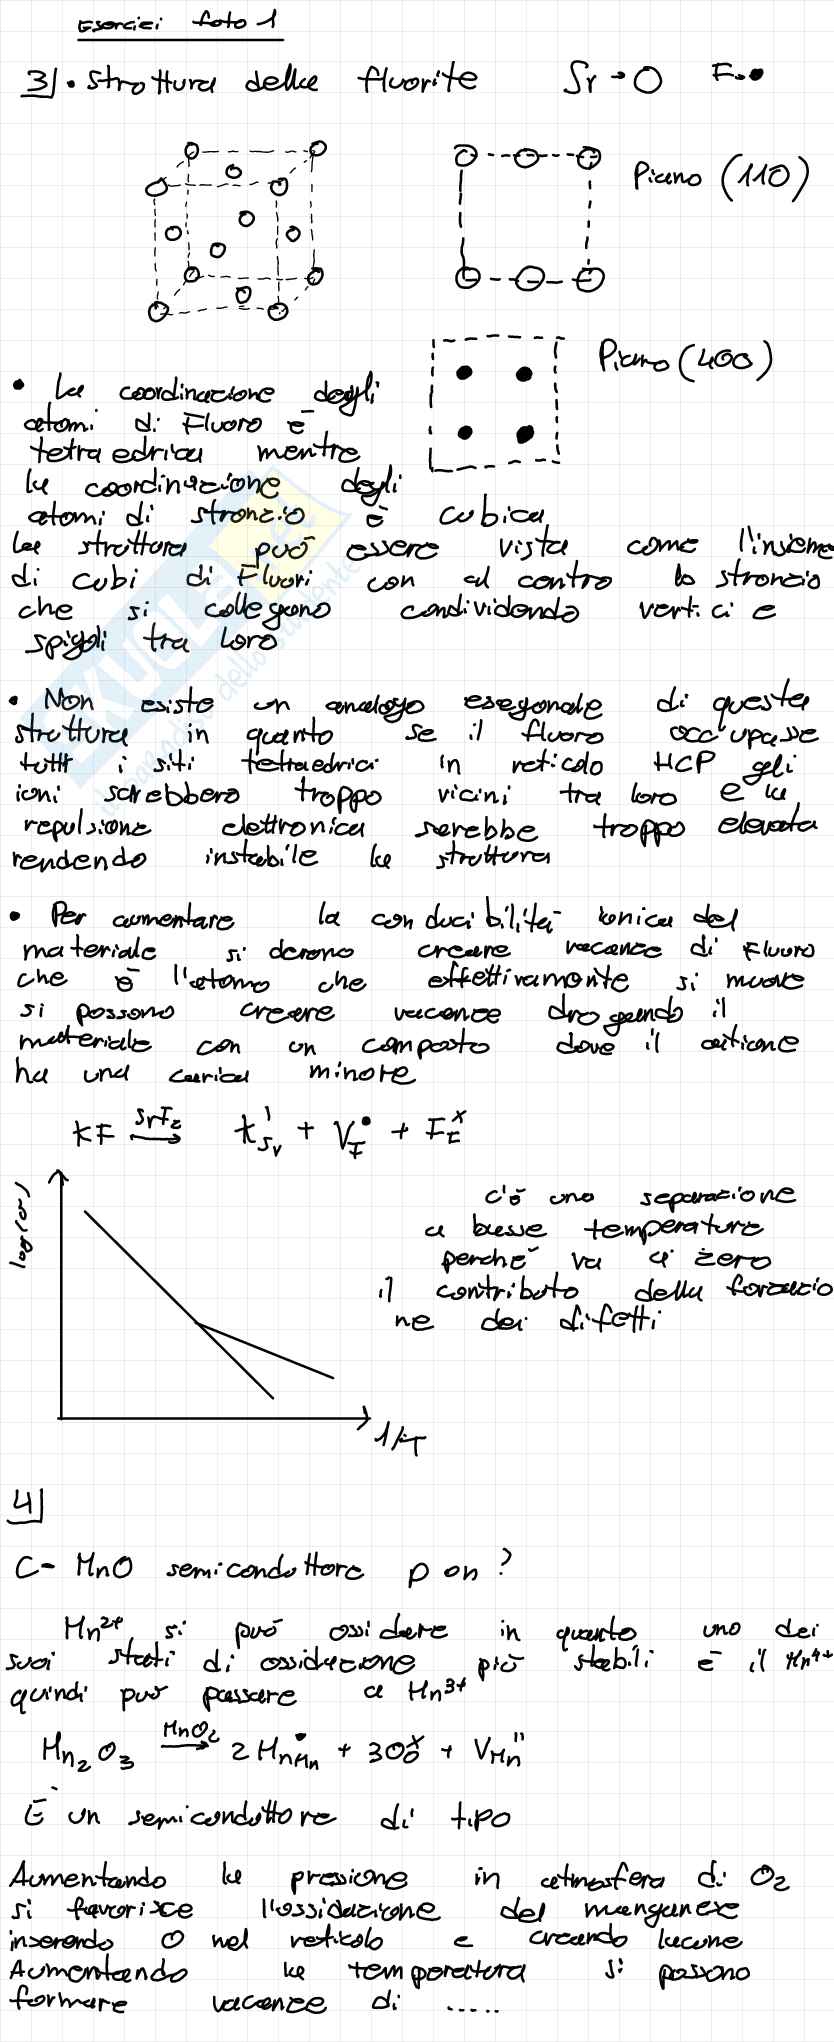 Esercizi foto 1
3) • Struttura della fluorite Sr → O F → •
Piano (110)
Piano (400)
• La coordinazione degli
atomi di Fluoro è
tetraedrica mentre
la coordinazione degli
atomi di stronzio è cubica
La struttura può essere vista come l'insieme
di cubi di Fluori con al centro lo stronzio
che si collegano condividendo vertici e
spigoli tra loro
• Non esiste un analogo esagonale di questa
struttura in quanto se il fluoro occupasse
tutti i siti tetraedrici in reticolo HCP gli
ioni sarebbero troppo vicini tra loro e la
repulsione elettronica sarebbe troppo elevata
rendendo instabile la struttura
• Per aumentare la conducibilità ionica del
materiale si devono creare vacanze di Fluoro
che è l'atomo che effettivamente si muove
si possono creare vacanze drogando il
materiale con un composto dove il catione
ha una carica minore
KF SrF2 → K'Sr + V•F + FxF
log(σ)
c'è una separazione
a basse temperature
perché va a zero
il contributo della formazio
ne dei difetti
1/T
4)
C- MnO semiconduttore p o n?
Mn2+ si può ossidare in quanto uno dei
suoi stati di ossidazione più stabili è il Mn4+
quindi può passare a Mn3+
Mn2O3 MnO2 → 2 Mn•Mn + 3OxO + V''Mn
È un semiconduttore di tipo
Aumentando la pressione in atmosfera di O2
si favorisce l'ossidazione del manganese
inserendo O nel reticolo e creando lacune
Aumentando la temperatura si possono
formare vacanze di .....
SKUOLA.net
il paradiso dello studente